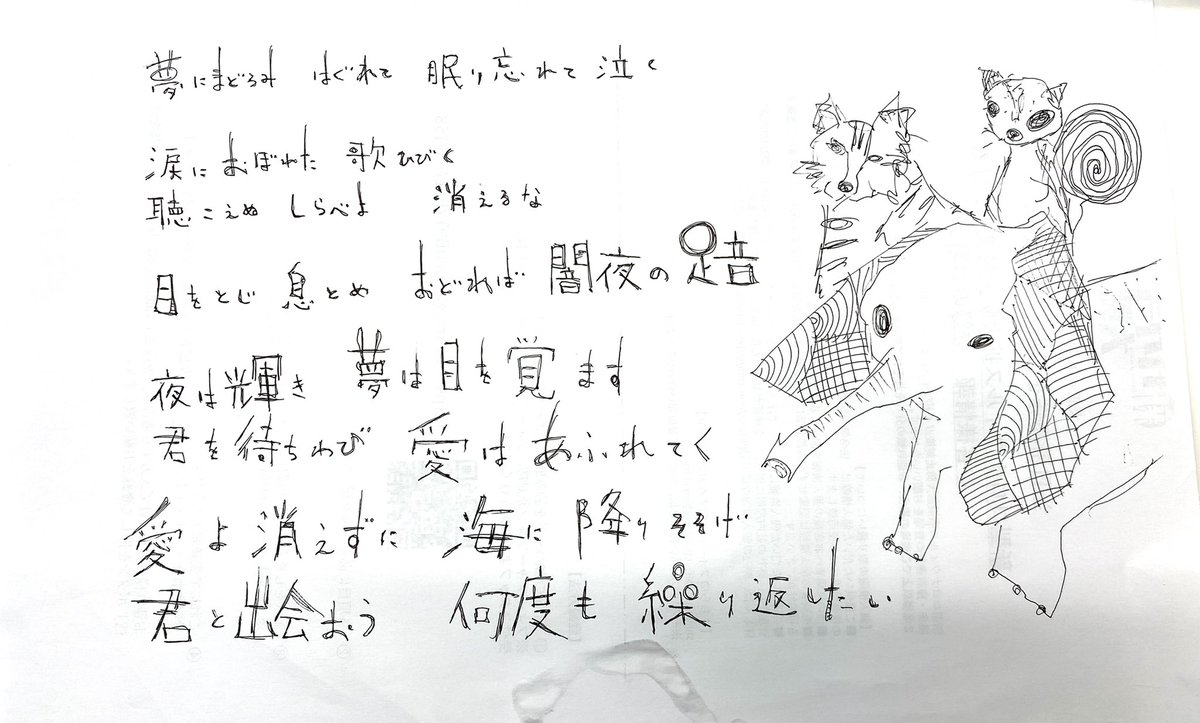 夢にまどろみ はぐれて 眠り忘れて 泣く
涙におぼれた 歌ひびく
聴こえぬ しらべよ 消えるな
目をとじ 息とめ おどれば 闇夜の足音
夜は輝き 夢は目を覚ます
君を待ちわび 愛は あふれてく
愛よ 消えずに 海に 降りそそげ
君と出会おう 何度も 繰り返したい